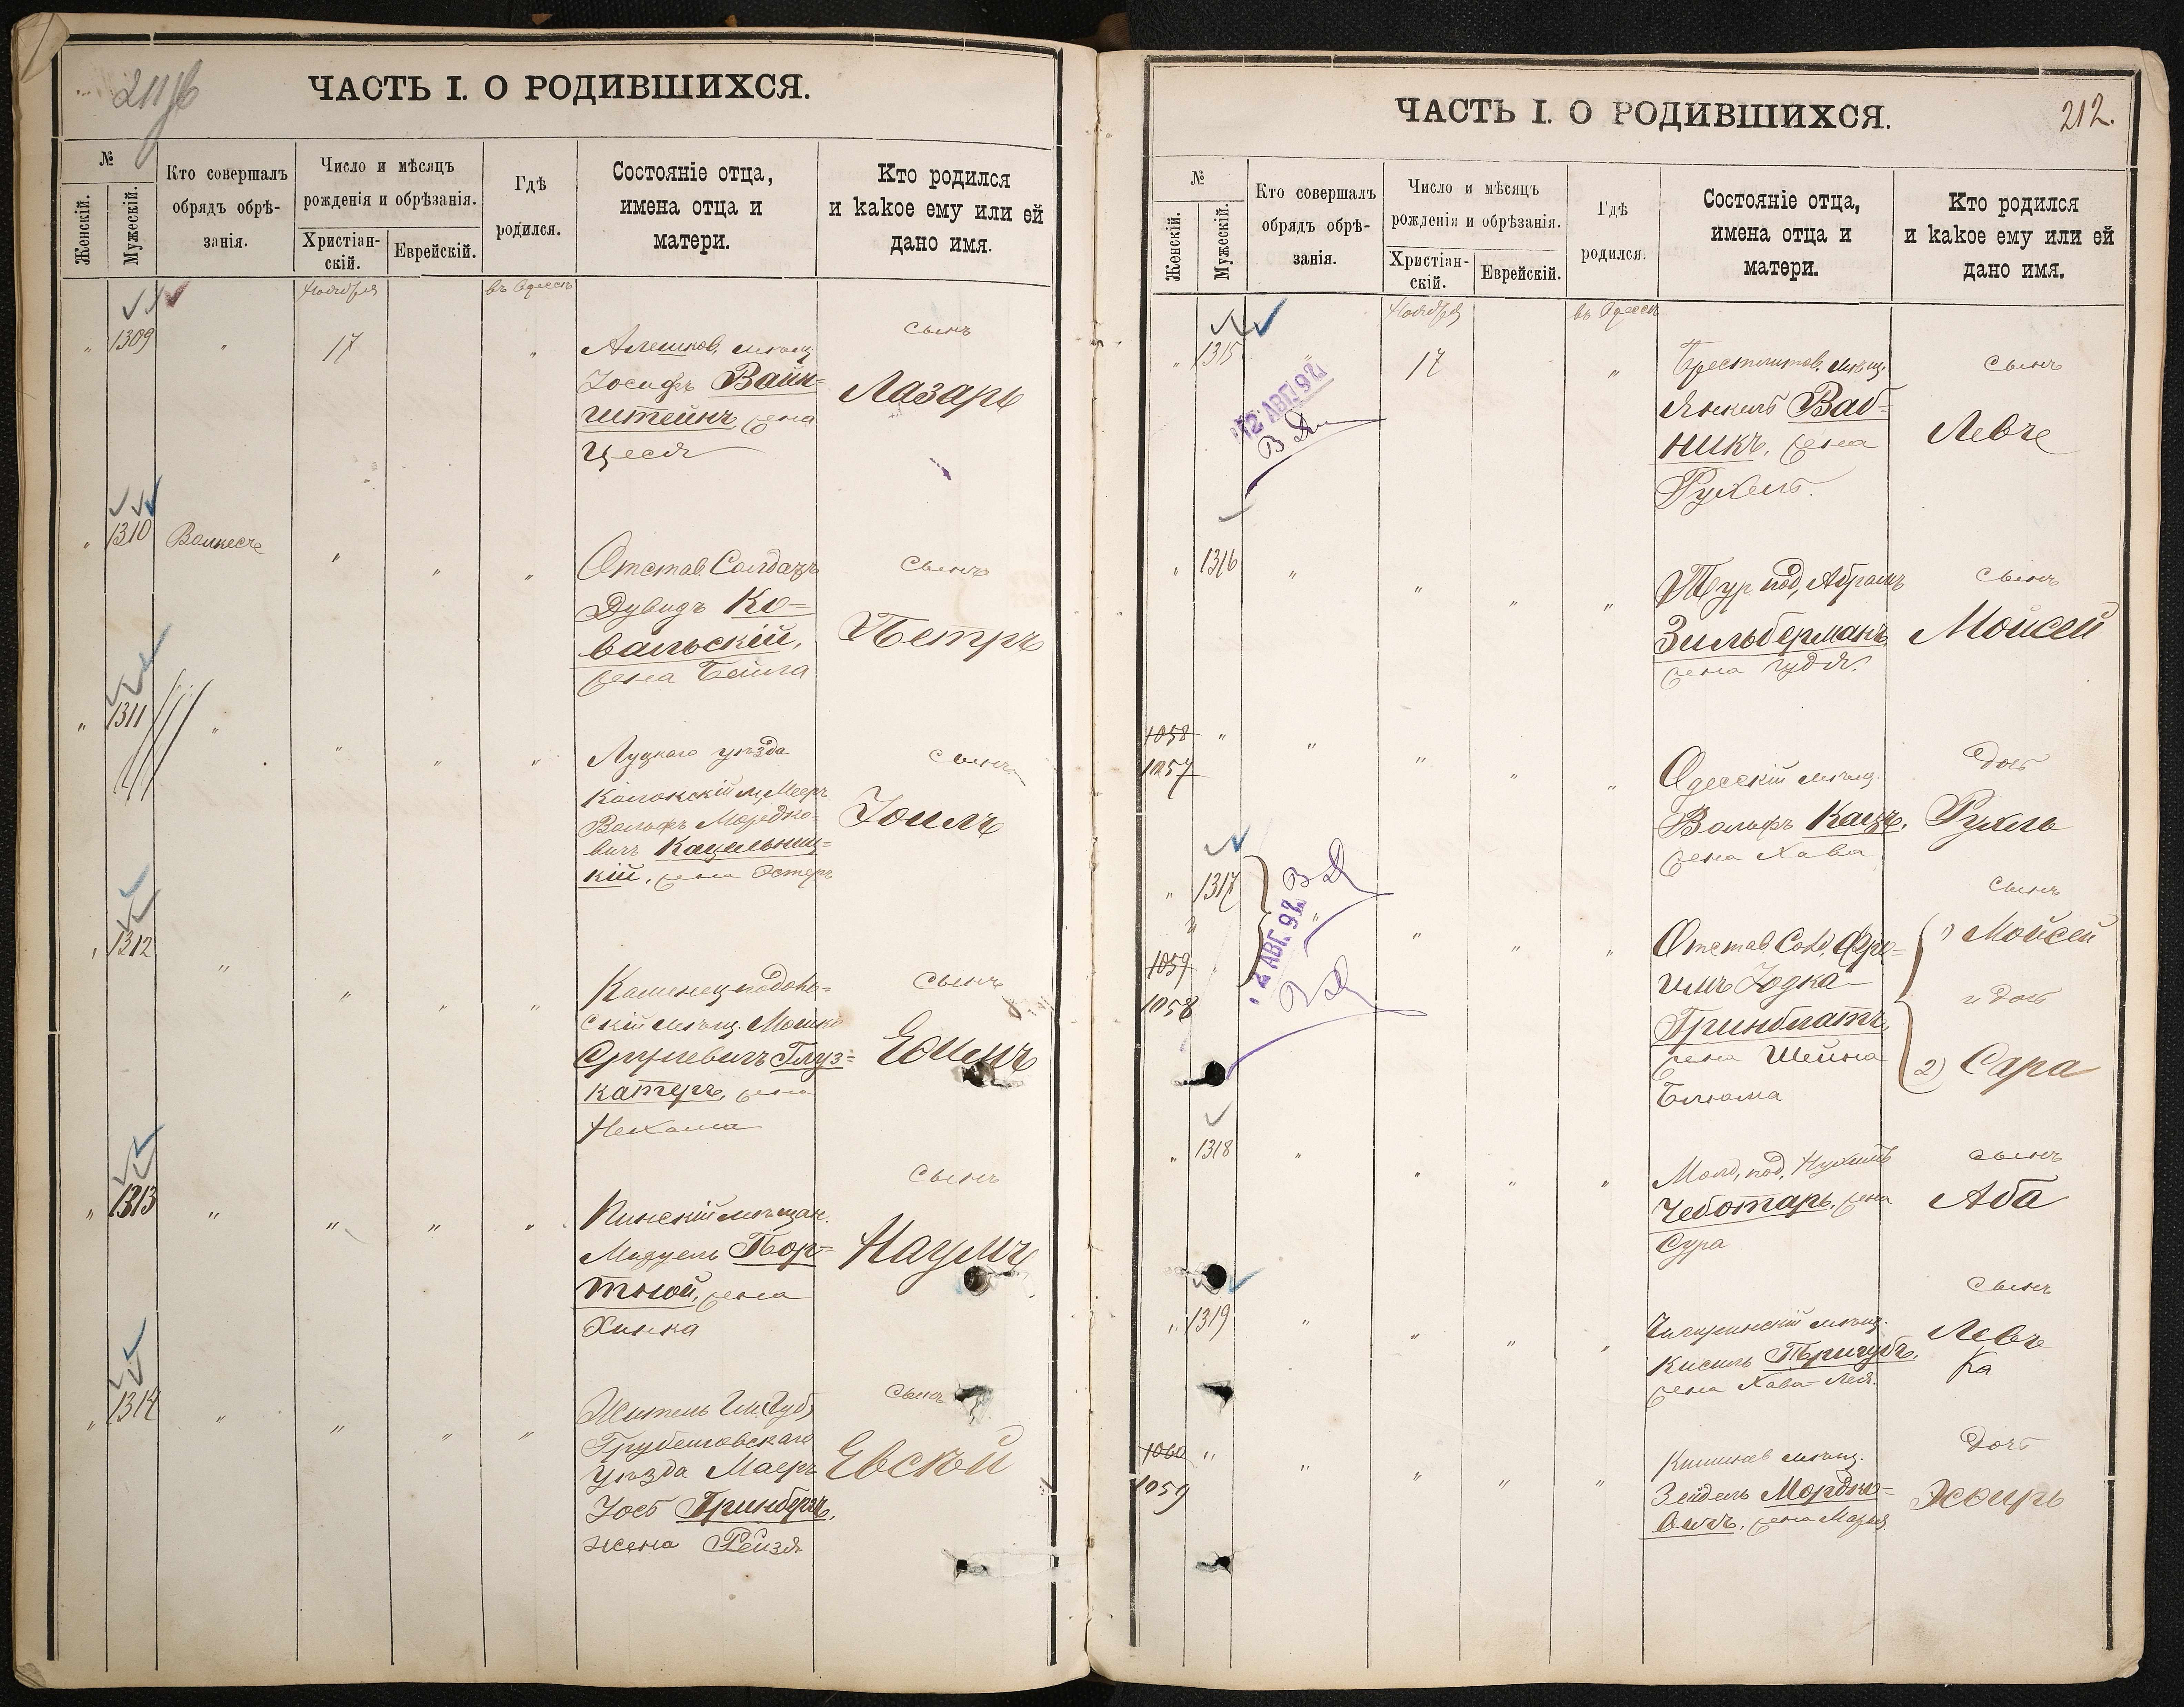 211 об
ЧАСТЬ I. О РОДИВШИХСЯ.
№
Женскій.
Мужескій.
Кто совершалъ
обрядъ обрѣ-
занія.
Число и мѣсяцъ
рожденія и обрѣзанія.
Христіан-
скій.
Еврейскій.
Гдѣ
родился.
Состояніе отца,
имена отца и
матери.
Кто родился
и какое ему или ей
дано имя.
Ноября
въ Одессѣ
" 1309 " 17 "
Алешков. мѣщ
Іосифъ Вайн-
штейнъ, жена
Цеся
сынъ
Лазарь
" 1310
" " "
Отстав. Солдатъ
Дувидъ Ко-
вальскій,
жена Бейла
сынъ
Петръ
" 1311 " " " "
Луцкаго уѣзда
м. Мееръ
Вольфъ Мордко-
вичъ Кацельниц-
кій, жена Эстеръ
сынъ
Іоилъ
" 1312 " " " "
Каменецподоль-
скій мѣщ. Мошко
Сруневичъ Глуз-
катеръ, жена
Нехама
сынъ
" 1313 " " " "
Пинскій мѣщан.
Мануель Пор-
тной, жена
Хинка
сынъ
Наумъ
" 1314 " " " "
Житель
Грубешовскаго
уѣзда Маеръ
Іосъ Гринбергъ,
жена Рейзя
сынъ
Евсѣй
212.
ЧАСТЬ I. О РОДИВШИХСЯ.
№
Женскій.
Мужескій.
Кто совершалъ
обрядъ обрѣ-
занія.
Число и мѣсяцъ
рожденія и обрѣзанія.
Христіан-
скій.
Еврейскій.
Гдѣ
родился.
Состояніе отца,
имена отца и
матери.
Кто родился
и какое ему или ей
дано имя.
Ноября
въ Одессѣ
" 1315 " 17 "
12 АВГ. 92
Брестлитов. мѣщ.
Янкель Ваб-
никъ, жена
Рухель.
сынъ
Левъ
" 1316 " " " "
Тур. под, Абрамъ
Зильберманъ
жена
сынъ
Мойсей
1058 " " " " "
1057
Одесскій мѣщ.
Вольфъ Кацъ,
жена Хава
дочь
Рухль
" 1317
" " " "
1059
1058
2 АВГ. 92
Отстав. Сол. Фро-
имъ Іодка
Гринблатъ,
жена Шейна
Блюма
сынъ
1) Мойсей
и дочь
2) Сара
" 1318 " " " "
Молд, под, Нухимъ
Чеботарь, жена
Сура
сынъ
Аба
" 1319 " " " "
Чигиринскій мѣщ.
Кисиль Пригубъ,
жена Хава Лея.
сынъ
Левъ
Ка
1060 " " " " "
1059
Кишинев мѣщ.
Зейдель Мордко-
вичъ, жена Марья
дочь
Эсѳирь